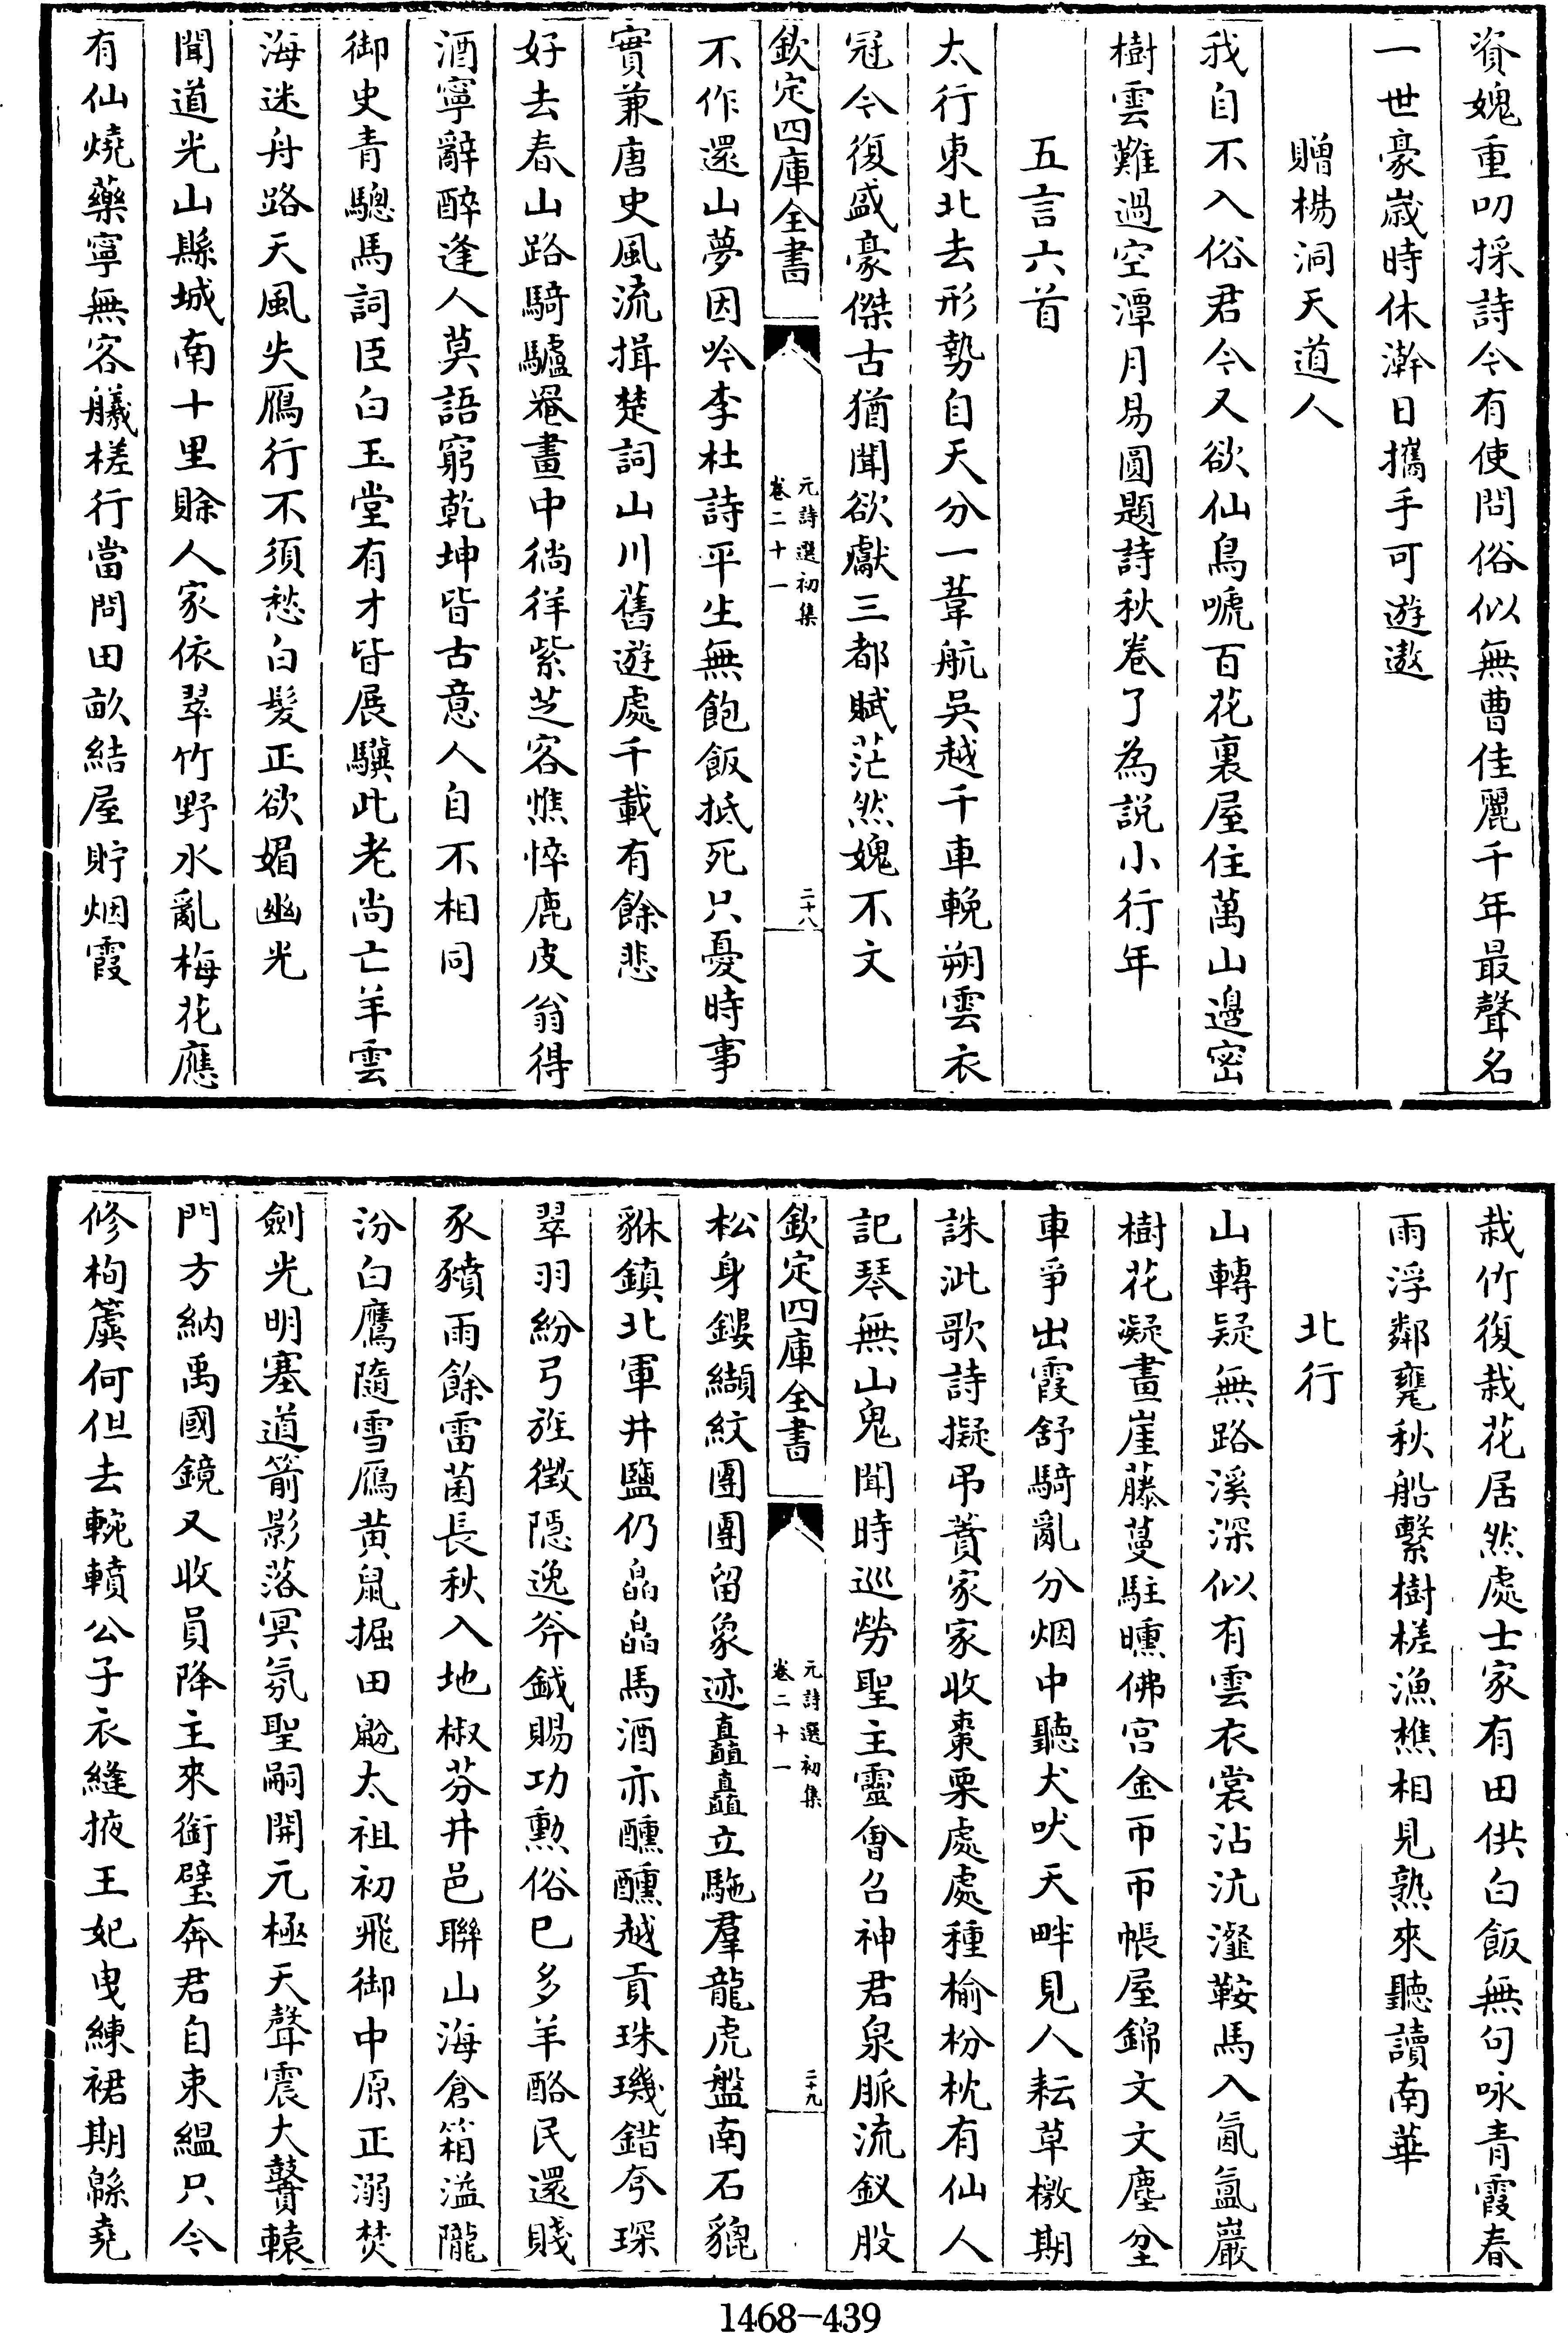 資媿重叨採詩今有使問俗似無曹佳麗千年最聲名
一世豪歲時休澣日攜手可遊遨
贈楊洞天道人
我自不入俗君今又欲仙鳥嗁百花裏屋住萬山邊密
樹雲難過空潭月易圓題詩秋卷了為說小行年
五言六首
太行東北去形勢自天分一葦航吳越千車輓朔雲衣
冠今復盛豪傑古猶聞欲獻三都賦茫然媿不文
欽定四庫全書
元詩選初集
卷二十一
二十八
不作還山夢因吟李杜詩平生無飽飯抵死只憂時事
實兼唐史風流揖楚詞山川舊遊處千載有餘悲
好去春山路騎驢罨畫中徜徉紫芝客憔悴鹿皮翁得
酒寧辭醉逢人莫語窮乾坤皆古意人自不相同
御史青驄馬詞臣白玉堂有才皆展驥此老尚亡羊雲
海迷舟路天風失鴈行不須愁白髮正欲媚幽光
聞道光山縣城南十里賒人家依翠竹野水亂梅花應
有仙燒藥寧無客艤槎行當問田畝結屋貯烟霞
栽竹復栽花居然處士家有田供白飯無句咏青霞春
雨浮鄰甕秋船繫樹槎漁樵相見熟來聽讀南華
北行
山轉疑無路溪深似有雲衣裳沾沆瀣鞍馬入氤氳巖
樹花凝畫崖藤蔓駐曛佛宮金帀帀帳屋錦文文塵坌
車爭出霞舒騎亂分烟中聽犬吠天畔見人耘草檄期
誅泚歌詩擬弔蕡家家收棗栗處處種榆枌枕有仙人
記琴無山鬼聞時巡勞聖主靈會召神君泉脈流釵股
欽定四庫全書
元詩選初集
卷二十一
二十九
松身鏤纈紋團團留象迹矗矗立駞羣龍虎盤南石貔
貅鎮北軍井鹽仍皛皛馬酒亦醺醺越貢珠璣錯夸琛
翠羽紛弓旌徵隱逸斧鉞賜功勲俗已多羊酪民還賤
豕豶雨餘雷菌長秋入地椒芬井邑聯山海倉箱溢隴
汾白鷹隨雪鴈黄鼠掘田鼢太祖初飛御中原正溺焚
劍光明塞道箭影落冥氛聖嗣開元極天聲震大鼖轅
門方納禹國鏡又收員降主來銜璧奔君自束緼只今
修栒簴何但去輓轒公子衣縫掖王妃曳練裙期緜堯
1468-439